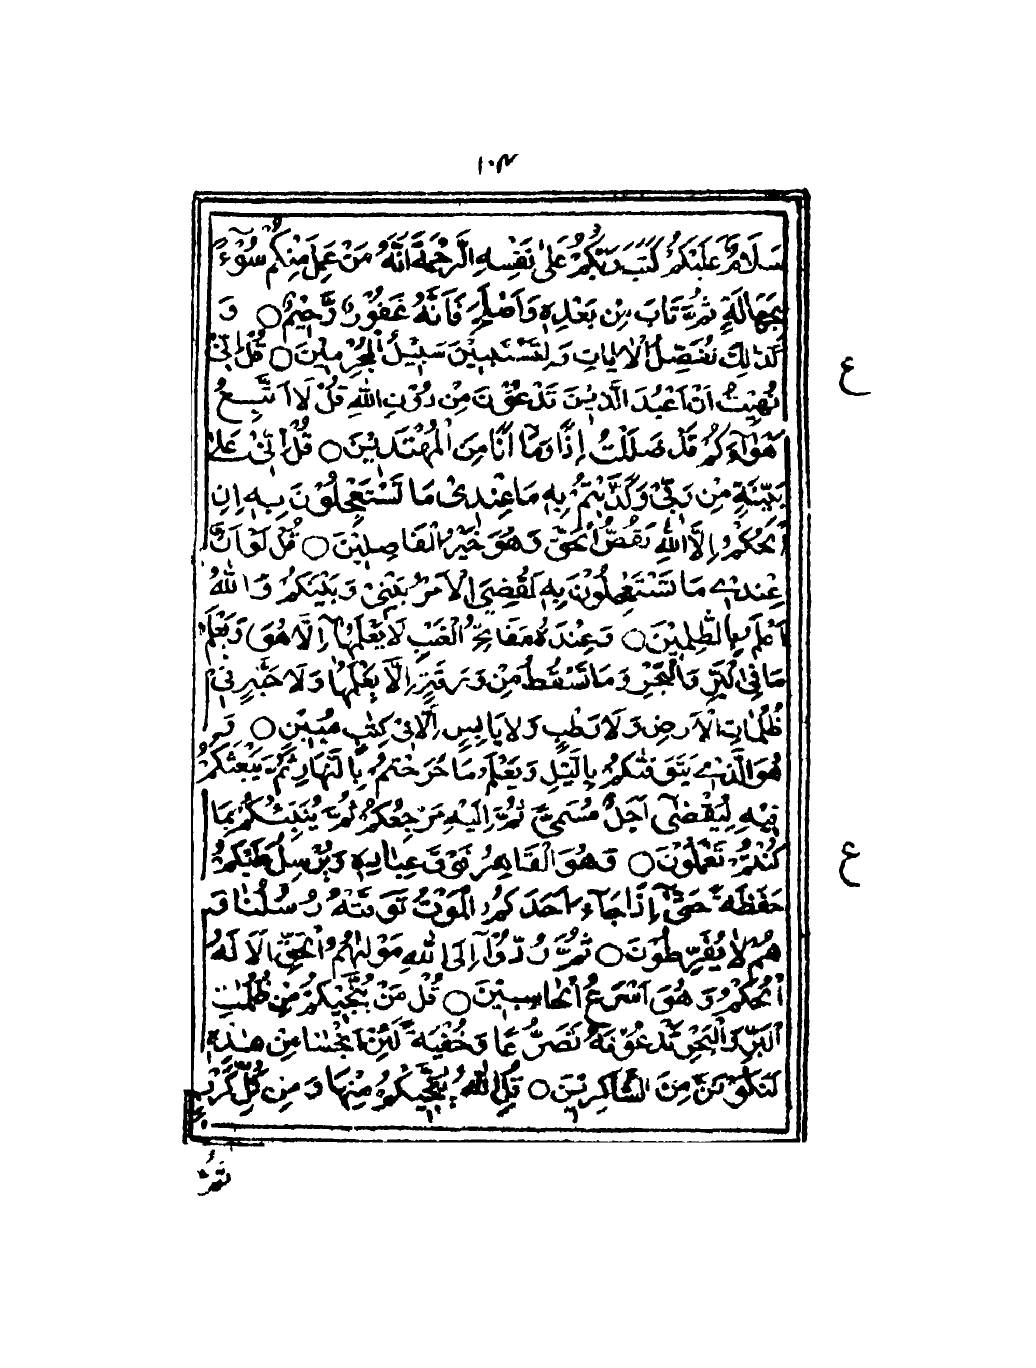 ۱۰۴
سَلَامٌ عَلَيْكُمْ كَتَبَ رَبُّكُمْ عَلٰى نَفْسِهِ الرَّحْمَةَ اَنَّهُ مَنْ عَمِلَ مِنْكُمْ سُوْٓءً
بِجَهَالَةٍ ثُمَّ تَابَ مِنْ بَعْدِهٖ وَاَصْلَحَ فَاَنَّهُ غَفُوْرٌ رَّحِيْمٌ ○ وَ
كَذٰلِكَ نُفَصِّلُ الْاٰيَاتِ وَلِتَسْتَبِيْنَ سَبِيْلُ الْمُجْرِمِيْنَ ○ قُلْ اِنِّيْ
ع
نُهِيْتُ اَنْ اَعْبُدَ الَّذِيْنَ تَدْعُوْنَ مِنْ دُوْنِ اللّٰهِ قُلْ لَا اَتَّبِعُ
اَهْوَآءَكُمْ قَدْ ضَلَلْتُ اِذًا وَمَا اَنَا مِنَ الْمُهْتَدِيْنَ ○ قُلْ اِنِّيْ عَلٰى
بَيِّنَةٍ مِنْ رَبِّيْ وَكَذَّبْتُمْ بِهٖ مَا عِنْدِيْ مَا تَسْتَعْجِلُوْنَ بِهٖ اِنِ
الْحُكْمُ اِلَّا لِلّٰهِ يَقُصُّ الْحَقَّ وَهُوَ خَيْرُ الْفَاصِلِيْنَ ○ قُلْ لَوْ اَنَّ
عِنْدِيْ مَا تَسْتَعْجِلُوْنَ بِهٖ لَقُضِيَ الْاَمْرُ بَيْنِيْ وَبَيْنَكُمْ وَاللّٰهُ
اَعْلَمُ بِالظّٰلِمِيْنَ ○ وَعِنْدَهُ مَفَاتِحُ الْغَيْبِ لَا يَعْلَمُهَا اِلَّا هُوَ وَيَعْلَمُ
مَا فِي الْبَرِّ وَالْبَحْرِ وَمَا تَسْقُطُ مِنْ وَرَقَةٍ اِلَّا يَعْلَمُهَا وَلَا حَبَّةٍ فِيْ
ظُلُمَاتِ الْاَرْضِ وَلَا رَطْبٍ وَلَا يَابِسٍ اِلَّا فِيْ كِتٰبٍ مُبِيْنٍ ○ وَ
هُوَ الَّذِيْ يَتَوَفّٰكُمْ بِالَّيْلِ وَيَعْلَمُ مَا جَرَحْتُمْ بِالنَّهَارِ ثُمَّ يَبْعَثُكُمْ
فِيْهِ لِيُقْضٰٓى اَجَلٌ مُسَمًّى ثُمَّ اِلَيْهِ مَرْجِعُكُمْ ثُمَّ يُنَبِّئُكُمْ بِمَا
كُنْتُمْ تَعْمَلُوْنَ ○ وَهُوَ الْقَاهِرُ فَوْقَ عِبَادِهٖ وَيُرْسِلُ عَلَيْكُمْ
ع
حَفَظَةً حَتّٰٓى اِذَا جَآءَ اَحَدَكُمُ الْمَوْتُ تَوَفَّتْهُ رُسُلُنَا وَ
هُمْ لَا يُفَرِّطُوْنَ ○ ثُمَّ رُدُّوْٓا اِلَى اللّٰهِ مَوْلٰهُمُ الْحَقِّ اَلَا لَهُ
الْحُكْمُ وَهُوَ اَسْرَعُ الْحَاسِبِيْنَ ○ قُلْ مَنْ يُنَجِّيْكُمْ مِنْ ظُلُمٰتِ
الْبَرِّ وَالْبَحْرِ تَدْعُوْنَهُ تَضَرُّعًا وَخُفْيَةً لَئِنْ اَنْجٰنَا مِنْ هٰذِهٖ
لَنَكُوْنَنَّ مِنَ الشَّاكِرِيْنَ ○ قُلِ اللّٰهُ يُنَجِّيْكُمْ مِنْهَا وَمِنْ كُلِّ كَرْبٍ
ثُمَّ